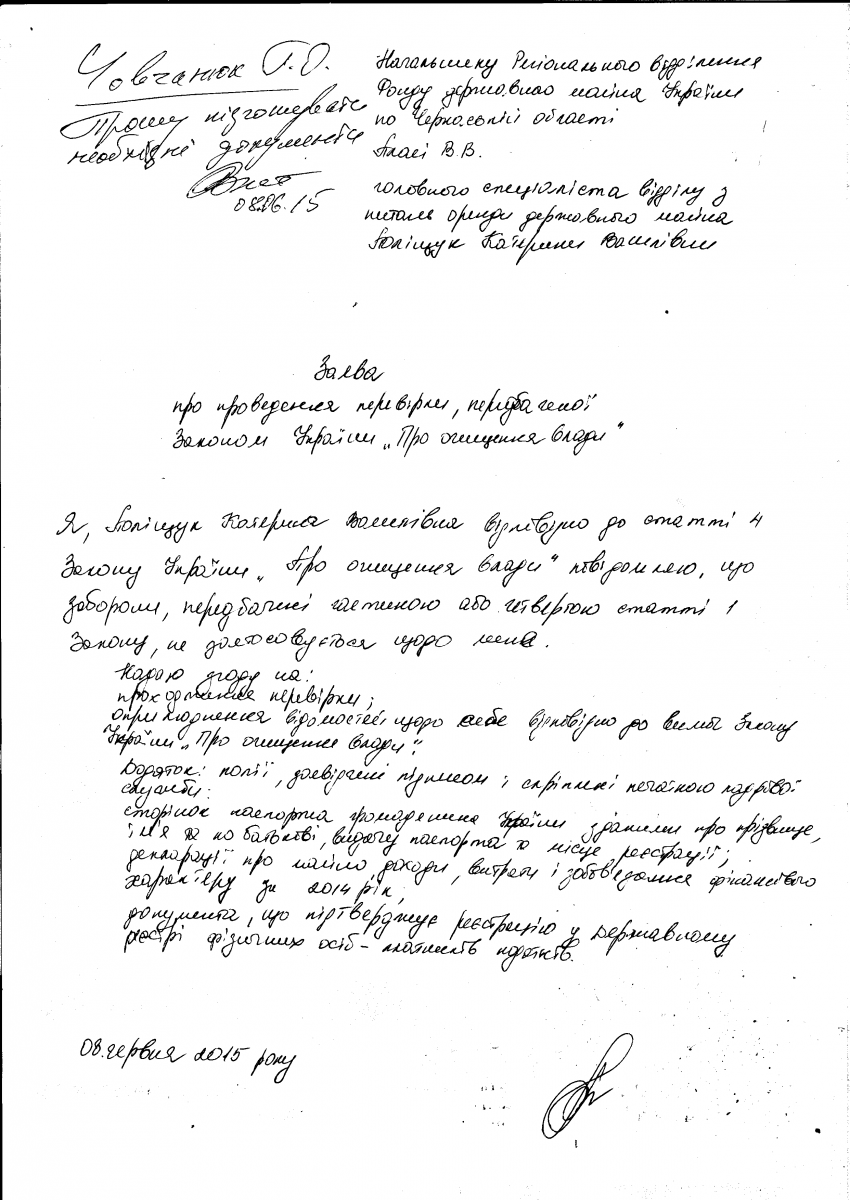 Човганюк Г.О.
Прошу підготувати
необхідні документи
08.06.15
Начальнику Регіонального відділення
Фонду державного майна України
по Черкаській області
В.В.
головного спеціаліста відділу з
питань оренди державного майна
Поліщук Катерини Василівни
Заява
про проведення перевірки, передбаченої
Законом України „Про очищення влади"
Я, Поліщук Катерина Василівна відповідно до статті 4
Закону України „Про очищення влади" повідомляю, що
заборони, передбачені частиною або четвертою статті 1
Закону, не застосовується щодо мене.
Надаю згоду на:
проходження перевірки;
оприлюднення відомостей щодо себе відповідно до вимог Закону
України „Про очищення влади".
Додаток: копії, засвідчені підписом і скріплені печаткою кадрової
служби:
сторінок паспорта громадянина України з даними про прізвище,
ім'я та по батькові, видачу паспорта та місце реєстрації;
декларації про майно, доходи, витрати і зобов'язання фінансового
характеру за 2014 рік;
документа, що підтверджує реєстрацію у Державному
реєстрі фізичних осіб – платників податків.
08 червня 2015 року